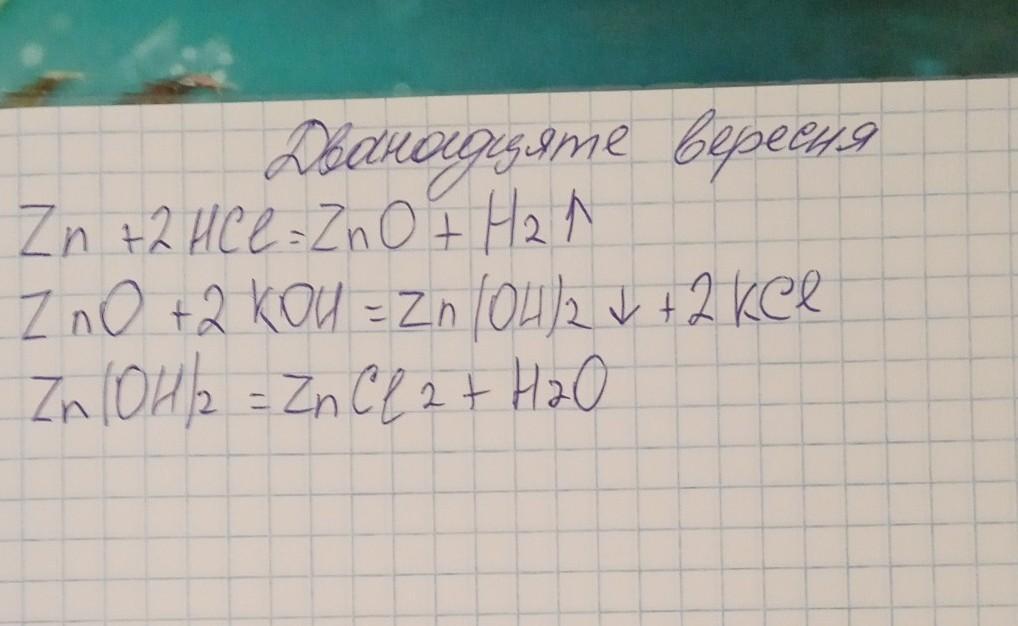 Дванадцяте вересня
Zn + 2HCl = ZnO + H2↑
ZnO + 2KOH = Zn(OH)2 ↓ + 2KCl
Zn(OH)2 = ZnCl2 + H2O